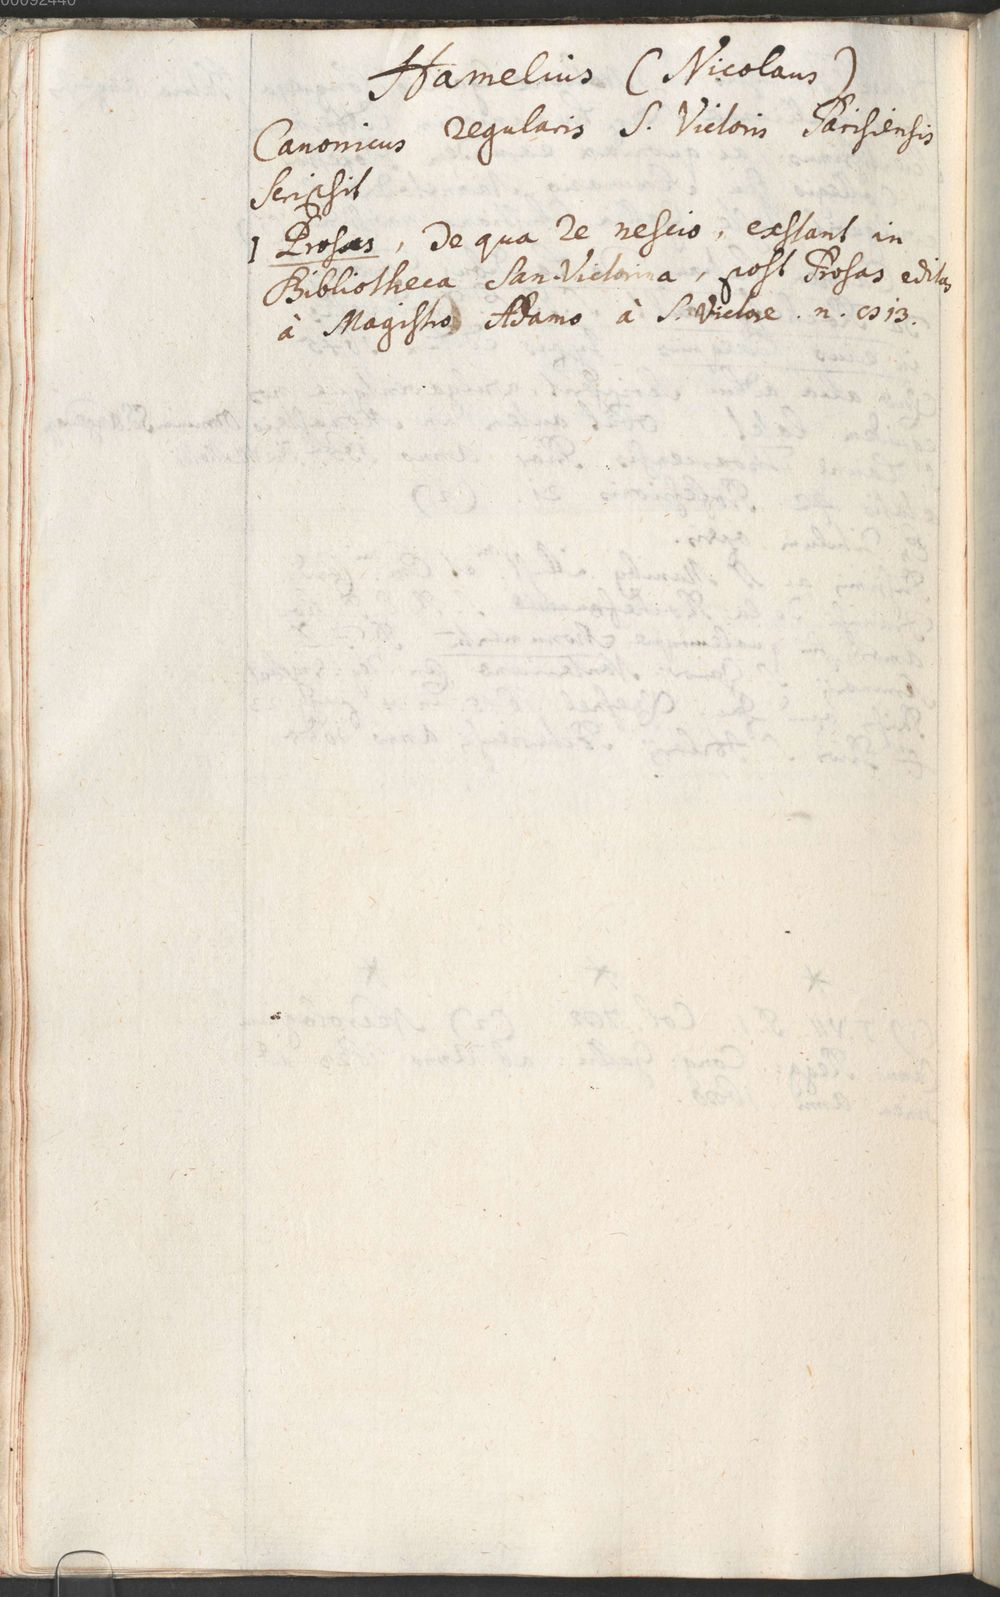 00092440
Hamelius (Nicolaus)
Canonicus regularis S. Victoris Parisiensis
scripsit
1 Prosas, de qua re nescio, exstant in
Bibliotheca San-Victorina, post Prosas editas
à Magistro Adamo à S. Victore. n.